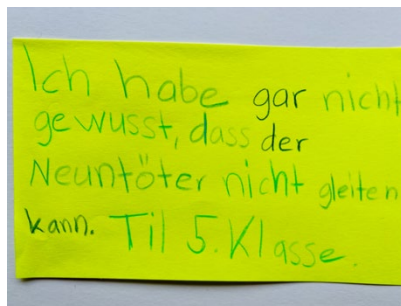 Ich habe gar nicht
gewusst, dass der
Neuntöter nicht gleiten
kann. Til 5. Klasse.